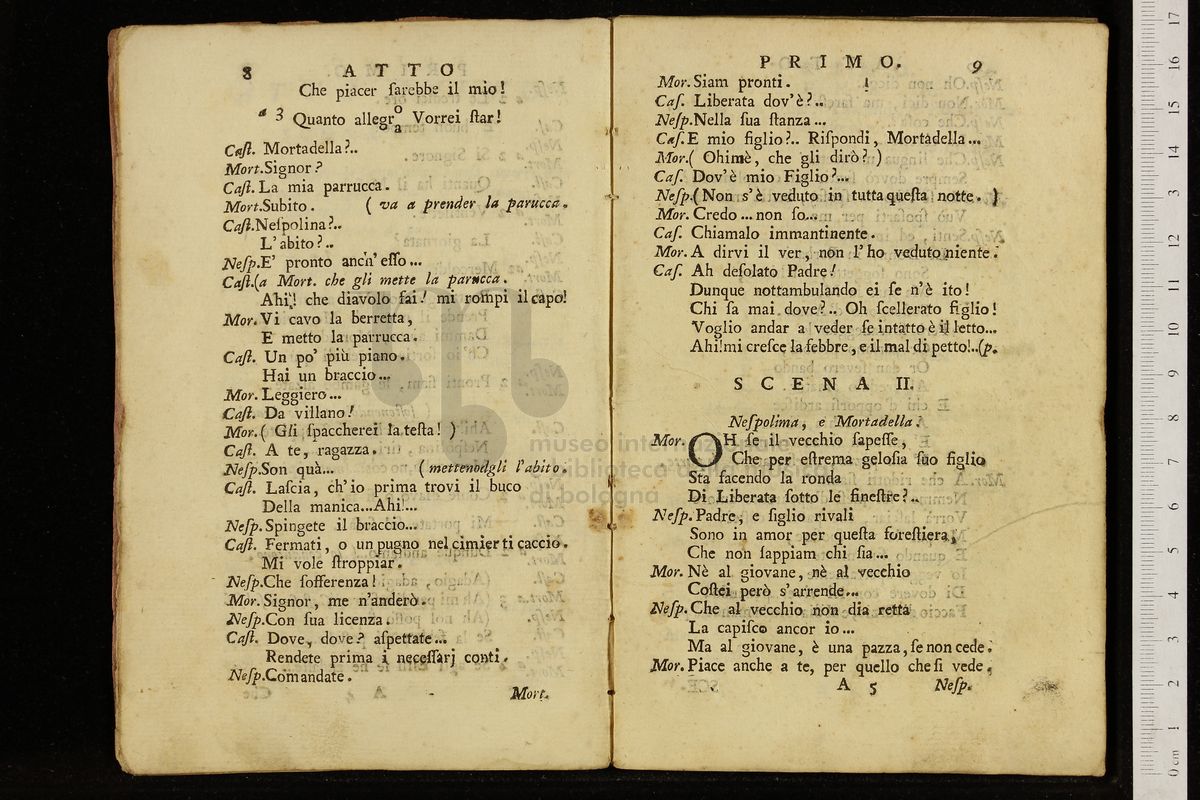 8 ATTO
Che piacer ſarebbe il mio!
a 3 Quanto allegro/a Vorrei ſtar!
Caſt. Mortadella?..
Mort. Signor?
Caſt. La mia parrucca.
Mort. Subito. ( va a prender la parucca.
Caſt. Neſpolina?..
L'abito?..
Neſp. E' pronto anch' eſſo...
Caſt. (a Mort. che gli mette la parucca.
Ahi! che diavolo fai! mi rompi il capo!
Mor. Vi cavo la berretta,
E metto la parrucca.
Caſt. Un po' più piano.
Hai un braccio...
Mor. Leggiero...
Caſt. Da villano!
Mor. ( Gli ſpaccherei la teſta! )
Caſt. A te, ragazza.
Neſp. Son quà... ( mettenodgli l'abito.
Caſt. Laſcia, ch'io prima trovi il buco
Della manica...Ahi!...
Neſp. Spingete il braccio...
Caſt. Fermati, o un pugno nel cimier ti caccio.
Mi vole ſtroppiar.
Neſp. Che ſofferenza!
Mor. Signor, me n'anderò.
Neſp. Con ſua licenza.
Caſt. Dove, dove? aſpettate...
Rendete prima i neceſſarj conti.
Neſp. Comandate.
Mort.
PRIMO. 9
Mor. Siam pronti.
Caſ. Liberata dov'è?..
Neſp. Nella ſua ſtanza...
Caſ. E mio figlio?.. Riſpondi, Mortadella...
Mor. ( Ohimè, che gli dirò? )
Caſ. Dov'è mio Figlio?...
Neſp. (Non s'è veduto in tutta queſta notte. )
Mor. Credo... non ſo...
Caſ. Chiamalo immantinente.
Mor. A dirvi il ver, non l'ho veduto niente.
Caſ. Ah deſolato Padre!
Dunque nottambulando ei ſe n'è ito!
Chi ſa mai dove?.. Oh ſcellerato figlio!
Voglio andar a veder ſe intatto è il letto...
Ahi! mi creſce la febbre, e il mal di petto!..(p.
SCENA II.
Neſpolima, e Mortadella.
Mor. OH ſe il vecchio ſapeſſe,
Che per eſtrema geloſia ſuo figlio
Sta facendo la ronda
Di Liberata ſotto le fineſtre?..
Neſp. Padre, e figlio rivali
Sono in amor per queſta foreſtiera,
Che non ſappiam chi ſia...
Mor. Nè al giovane, nè al vecchio
Coſtei però s'arrende...
Neſp. Che al vecchio non dia retta
La capiſco ancor io...
Ma al giovane, è una pazza, ſe non cede.
Mor. Piace anche a te, per quello che ſi vede.
A 5 Neſp.
museo internazionale
e biblioteca della musica
di bologna
0 cm 1 2 3 4 5 6 7 8 9 10 11 12 13 14 15 16 17